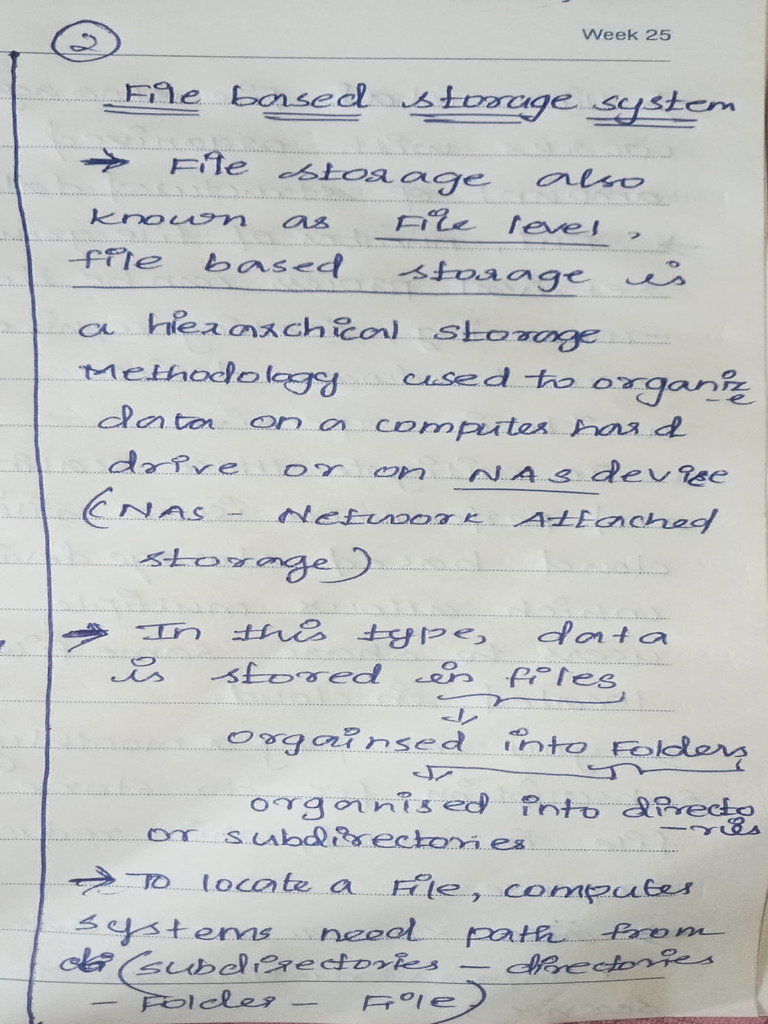 2
Week 25
File based storage system
→ File storage also
known as File level,
file based storage is
a hierarchical storage
Methodology used to organiz
-e
data on a computer hard
drive or on NAS devise
(NAS - Network Attached
storage)
→ In this type, data
is stored in files
orgainsed into Folders,
organised into directo
-ries
or subdirectories
→ To locate a File, computer
systems need path from
(subdirectories - directories
- Folder - File)